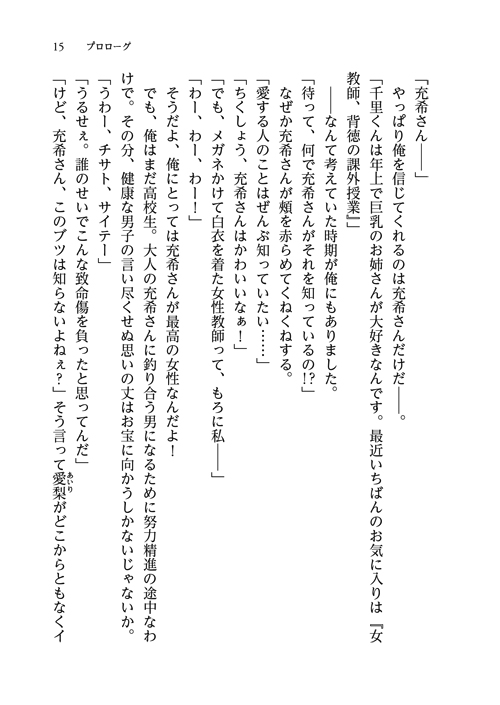 15　プロローグ
「充希さん――」
　やっぱり俺を信じてくれるのは充希さんだけだ――。
「千里くんは年上で巨乳のお姉さんが大好きなんです。最近いちばんのお気に入りは『女
教師、背徳の課外授業』」
　――なんて考えていた時期が俺にもありました。
「待って、何で充希さんがそれを知っているの!?」
　なぜか充希さんが頬を赤らめてくねくねする。
「愛する人のことはぜんぶ知っていたい……」
「ちくしょう、充希さんはかわいいなぁ！」
「でも、メガネかけて白衣を着た女性教師って、もろに私――」
「わー、わー、わー！」
　そうだよ、俺にとっては充希さんが最高の女性なんだよ！
　でも、俺はまだ高校生。大人の充希さんに釣り合う男になるために努力精進の途中なわ
けで。その分、健康な男子の言い尽くせぬ思いの丈はお宝に向かうしかないじゃないか。
「うわー、チサト、サイテー」
「うるせぇ。誰のせいでこんな致命傷を負ったと思ってんだ」
「けど、充希さん、このブツは知らないよねぇ？」そう言って愛梨がどこからともなくイ
あいり